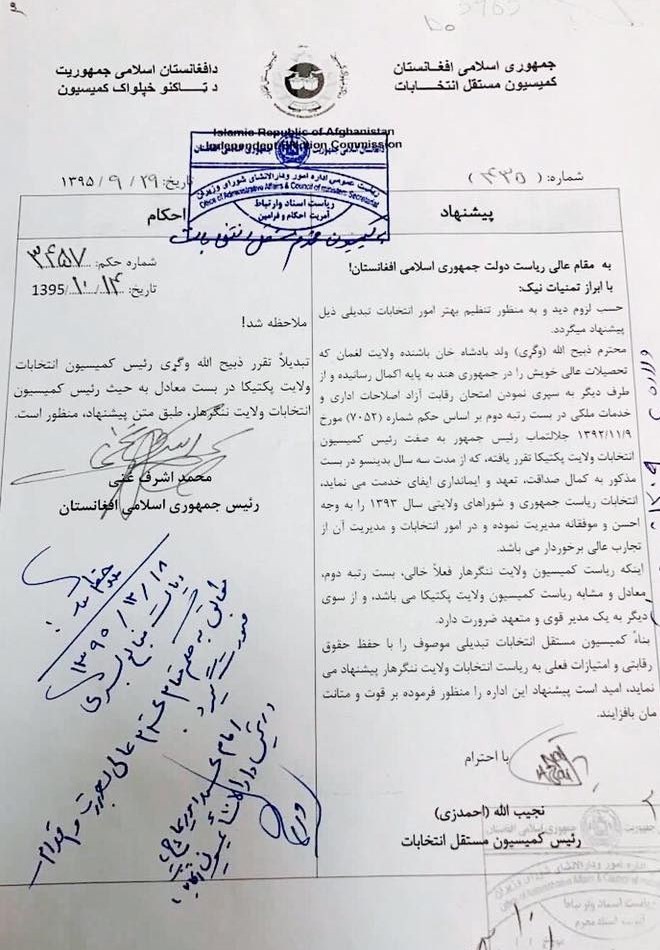 جمهوری اسلامی افغانستان
کمیسیون مستقل انتخابات
دافغانستان اسلامی جمهوریت
د ټاکنو خپلواک کمیسیون
Islamic Republic of Afghanistan
Independent Election Commission
شماره: (۴۳۵)
تاریخ: ۲۹ / ۹ / ۱۳۹۵
ریاست عمومی اداره امور ودارالانشای شورای وزیران
Office of Administrative Affairs & Council of ministers Secretariat
ریاست اسناد وارتباط
آمریت احکام و فرامین
پیشنهاد
به مقام عالی ریاست دولت جمهوری اسلامی افغانستان!
با ابراز تمنیات نیک:
حسب لزوم دید و به منظور تنظیم بهتر امور انتخابات تبدیلی ذیل
پیشنهاد میگردد.
محترم ذبیح الله (وگری) ولد بادشاه خان باشنده ولایت لغمان که
تحصیلات عالی خویش را در جمهوری هند به پایه اکمال رسانیده و از
طرف دیگر به سپری نمودن امتحان رقابت آزاد اصلاحات اداری و
خدمات ملکی در بست رتبه دوم بر اساس حکم شماره (۷۰۵۲) مورخ
۱۳۹۲/۱۱/۹ جلالتماب رئیس جمهور به صفت رئیس کمیسیون
انتخابات ولایت پکتیکا تقرر یافته، که از مدت سه سال بدینسو در بست
مذکور به کمال صداقت، تعهد و ایمانداری ایفای خدمت می نماید،
انتخابات ریاست جمهوری و شوراهای ولایتی سال ۱۳۹۳ را به وجه
احسن و موفقانه مدیریت نموده و در امور انتخابات و مدیریت آن از
تجارب عالی برخوردار می باشد.
اینکه ریاست کمیسیون ولایت ننگرهار فعلاً خالی، بست رتبه دوم،
معادل و مشابه ریاست کمیسیون ولایت پکتیکا می باشد، و از سوی
دیگر به یک مدیر قوی و متعهد ضرورت دارد.
بناءً کمیسیون مستقل انتخابات تبدیلی موصوف را با حفظ حقوق
رقابتی و امتیازات فعلی به ریاست انتخابات ولایت ننگرهار پیشنهاد می
نماید، امید است پیشنهاد این اداره را منظور فرموده بر قوت و متانت
مان بافزایند.
با احترام
نجیب الله (احمدزی)
رئیس کمیسیون مستقل انتخابات
احکام
به کمیسیون محترم مستقل انتخابات
شماره حکم: ۳۴۵۷
تاریخ: ۱۴/۱۰/1395
ملاحظه شد!
تبدیلاً تقرر ذبیح الله وگری رئیس کمیسیون انتخابات
ولایت پکتیکا در بست معادل به حیث رئیس کمیسیون
انتخابات ولایت ننگرهار، طبق متن پیشنهاد، منظور است.
محمد اشرف غنی
رئیس جمهوری اسلامی افغانستان
ریاست منابع بشری